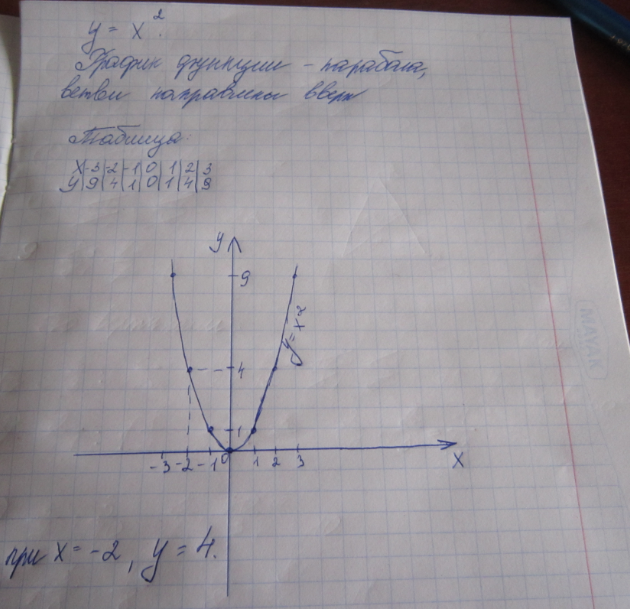 y = x².
График функции – парабола,
ветви направлены вверх
Таблица
x|-3|-2|-1|0|1|2|3
y|9|4|1|0|1|4|9
y
9
y=x²
4
1
-3 -2 -1 0 1 2 3
x
при x = -2, y = 4.
MAYAK